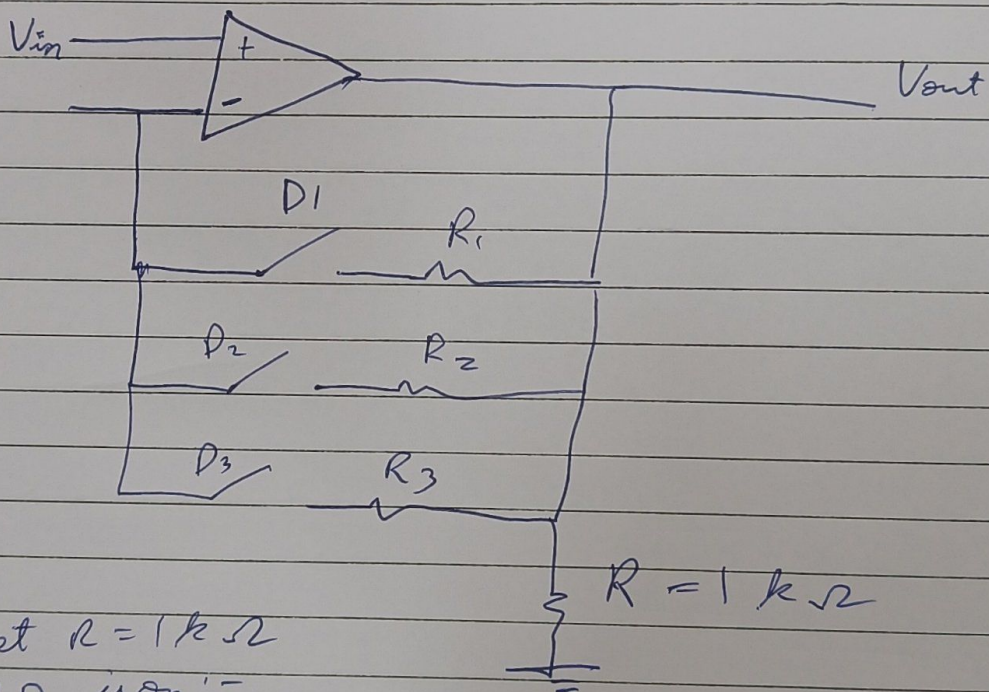 Vin
+
-
Vout
D1
R1
D2
R2
D3
R3
R = 1 kΩ
et R = 1kΩ